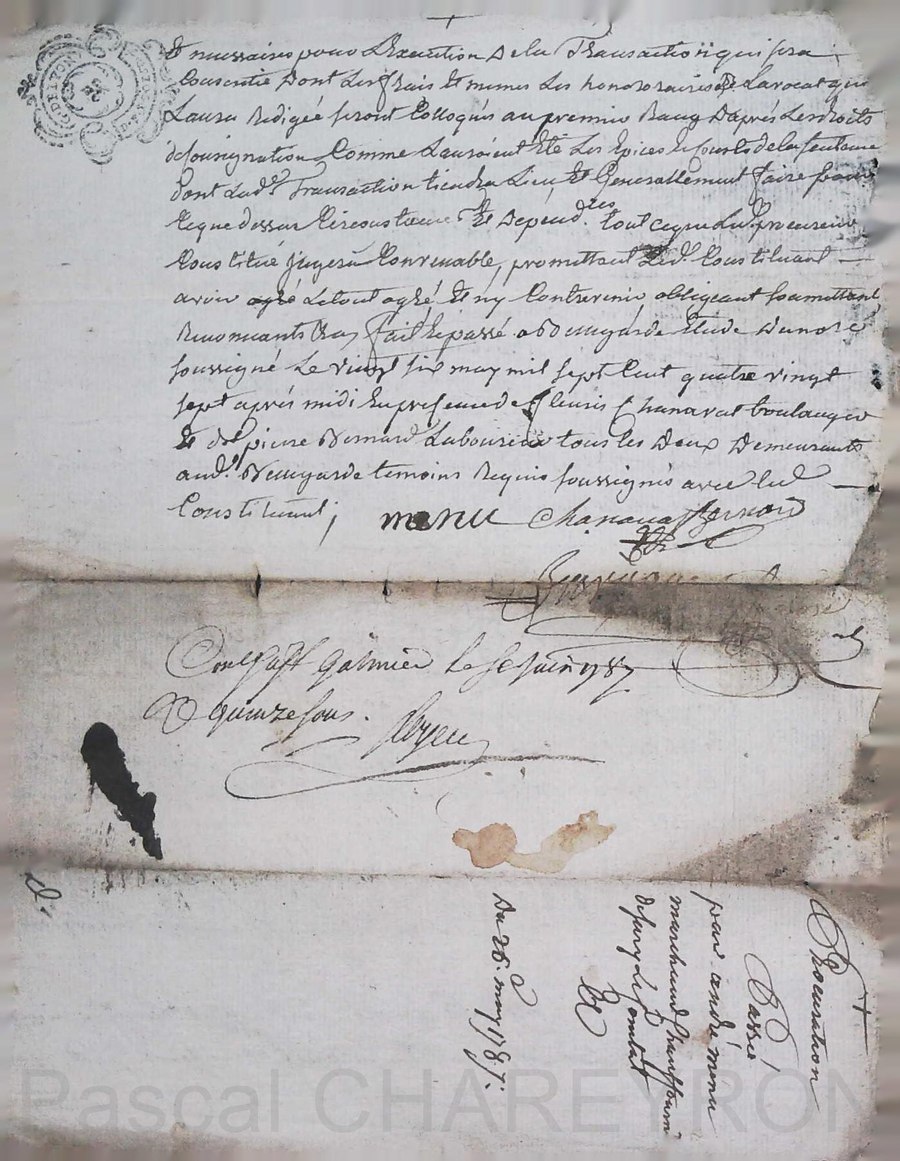 Et necessaires pour L'Execution De la Transaction qui sera
Consentie Dont Les frais Et memes Les honoraires De Lavocat qui
Laura Redigée seront Colloqués au premier Rang D'aprés Les droits
de Consignation Comme Lauroient Eté Les Epices et Couts de la sentence
Dont Lad.e Transaction tiendra Lieu Et Generallement faire pour
Ceque dessus Circonstances Et Depend.ces tout ceque Led. procureur
Constitué jugera Convenable, promettant Led. Constituant
avoir agré Le tout agré Et ny Contrevenir obligeant soumettant
Renonceants fait Et passé a Bellegarde Etude Du no.re
soussigné Le vingt six may mil sept Cent quatre vingt
sept aprés midi En presence de fleuris Chanavat boulanger
Et de pierre Bernard Laboureur tous les Deux Demeurants
aud. Bellegarde temoins Requis soussignés avec led
Constituant;
menu Chanavat Bernard
Con.llé a St Galmier le 8e Juin 1787
R quinze sous.
Procuration
Passée
par andré menu
marchand
de sury Le Comtat
Du 26. may 1787.
Pascal CHAREYRON